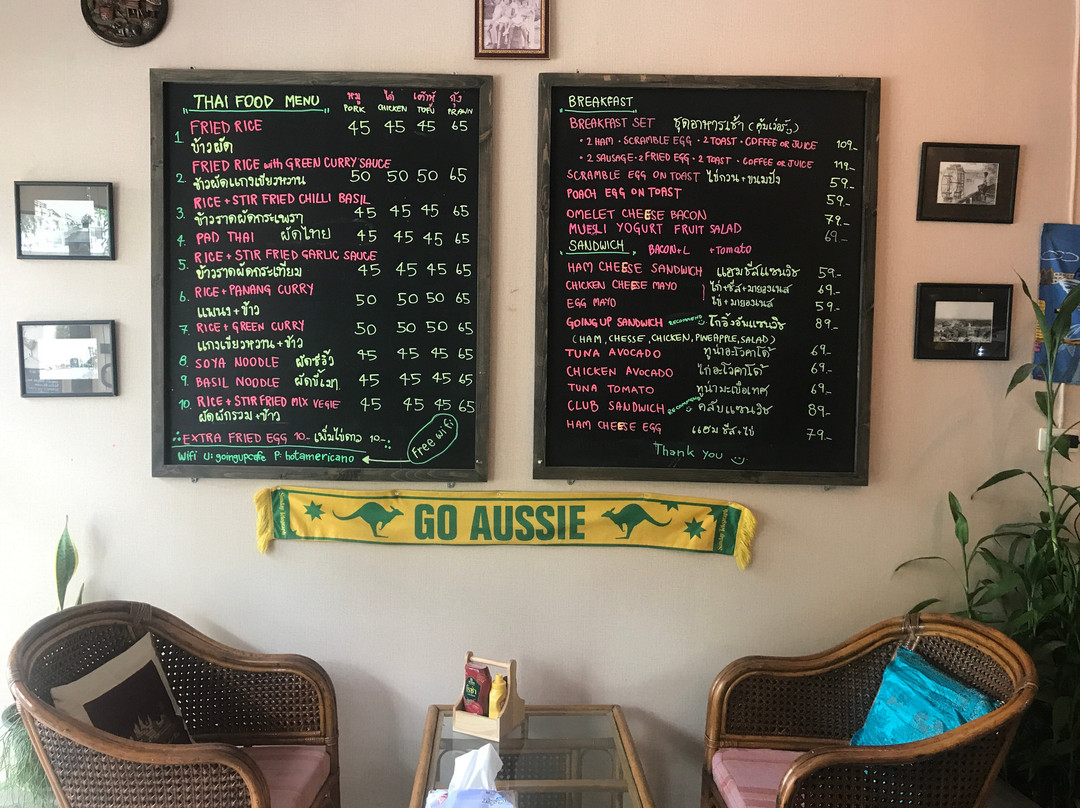 THAI FOOD MENU
หมู ไก่ เต้าหู้ กุ้ง
PORK CHICKEN TOFU PRAWN
1. FRIED RICE 45 45 45 65
ข้าวผัด
FRIED RICE with GREEN CURRY SAUCE
2. ข้าวผัดแกงเขียวหวาน 50 50 50 65
RICE + STIR FRIED CHILLI BASIL
3. ข้าวราดผัดกระเพรา 45 45 45 65
4. PAD THAI ผัดไทย 45 45 45 65
RICE + STIR FRIED GARLIC SAUCE
5. ข้าวราดผัดกระเทียม 45 45 45 65
6. RICE + PANANG CURRY 50 50 50 65
แพนง + ข้าว
7. RICE + GREEN CURRY 50 50 50 65
แกงเขียวหวาน + ข้าว
8. SOYA NOODLE ผัดซีอิ้ว 45 45 45 65
9. BASIL NOODLE ผัดขี้เมา 45 45 45 65
10. RICE + STIR FRIED MIX VEGIE 45 45 45 65
ผัดผักรวม + ข้าว
EXTRA FRIED EGG 10.- เพิ่มไข่ดาว 10.-
Wifi U: goingupcafe P: hotamericano
Free wifi
BREAKFAST
BREAKFAST SET ชุดอาหารเช้า
• 2 HAM • SCRAMBLE EGG • 2 TOAST • COFFEE OR JUICE 109.-
• 2 SAUSAGE • 2 FRIED EGG • 2 TOAST • COFFEE OR JUICE 119.-
SCRAMBLE EGG ON TOAST ไข่กวน + ขนมปัง 59.-
POACH EGG ON TOAST 59.-
OMELET CHEESE BACON 79.-
MUESLI YOGURT FRUIT SALAD 69.-
SANDWICH BACON + L + Tomato
HAM CHEESE SANDWICH แฮมชีสแซนวิช 59.-
CHICKEN CHEESE MAYO ไก่ + ชีส + มายองเนส 69.-
EGG MAYO ไข่ + มายองเนส 59.-
GOING UP SANDWICH RECOMMEND โกอิ้งอัพแซนวิช 89.-
(HAM, CHESSE, CHICKEN, PINEAPPLE, SALAD)
TUNA AVOCADO ทูน่าอะโวคาโด้ 69.-
CHICKEN AVOCADO ไก่อะโวคาโด้ 69.-
TUNA TOMATO ทูน่ามะเขือเทศ 69.-
CLUB SANDWICH RECOMMEND คลับแซนวิช 89.-
HAM CHEESE EGG แฮม ชีส + ไข่ 79.-
Thank you
GO AUSSIE